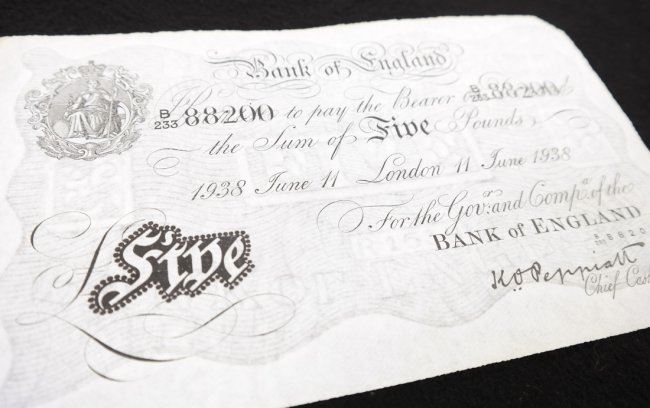 Bank of England
B/233 88200 to pay the Bearer B/233 88200
the Sum of Five Pounds
1938 June 11 London 11 June 1938
For the Govr. and Compa. of the
BANK of ENGLAND
Five
K.O. Peppiatt
Chief